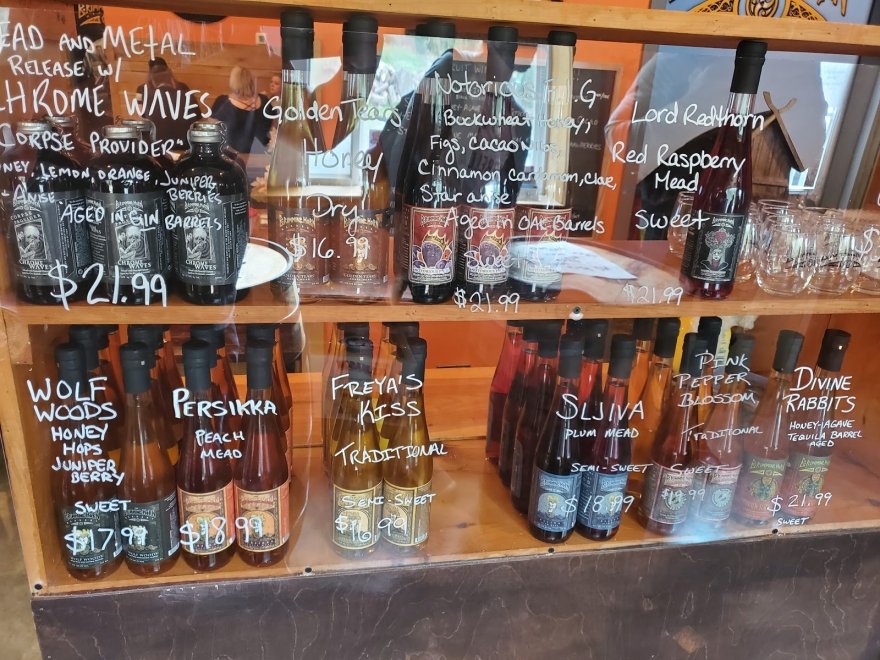 EAD AND METAL
RELEASE W/
CHROME WAVES
"CORPSE PROVIDER"
HONEY, LEMON, ORANGE
JUNIPER
BERRIES
AGED IN GIN BARRELS
CHROME
WAVES
$21.99
Golden Tears
Honey
Dry
$16.99
Notorious F.I.G
Buckwheat Honey,
Figs, cacao Nibs,
Cinnamon, cardamon, clove,
Star anise
Aged in OAK Barrels
Sweet
$21.99
Lord Redthorn
Red Raspberry
Mead,
Sweet
$21.99
WOLF
WOODS
HONEY
HOPS
JUNIPER
BERRY
SWEET
$17.99
PERSIKKA
PEACH
MEAD
$18.99
FREYA'S
KISS
TRADITIONAL
SEMI-SWEET
$16.99
SLJIVA
PLUM MEAD
SEMI-SWEET
$18.99
PINK
PEPPER
BLOSSOM
TRADITIONAL
SWEET
$18.99
DIVINE
RABBITS
HONEY-AGAVE
TEQUILA BARREL
AGED
$21.99
SWEET